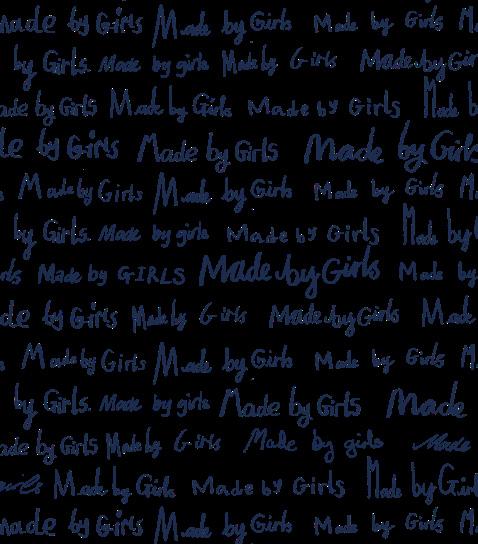 made by Girls Made by Girls Made by Girls
by Girls. Made by girls Made by Girls Made by Gir
ade by Girls Made by Girls Made by Girls Made b
de by Girls Made by Girls Made by Girls
Made by Girls Made by Girls Made by Girls
by Girls. Made by girls Made by Girls Made by
rls Made by GIRLS Made by Girls Made by
de by Girls Made by Girls Made by Girls Made
Made by Girls Made by Girls Made by Girls
by Girls. Made by girls Made by Girls Made
ade by Girls Made by Girls Made by girls Made
Girls Made by Girls Made by Girls Made by Girl
made by Girls Made by Girls Made by Girls